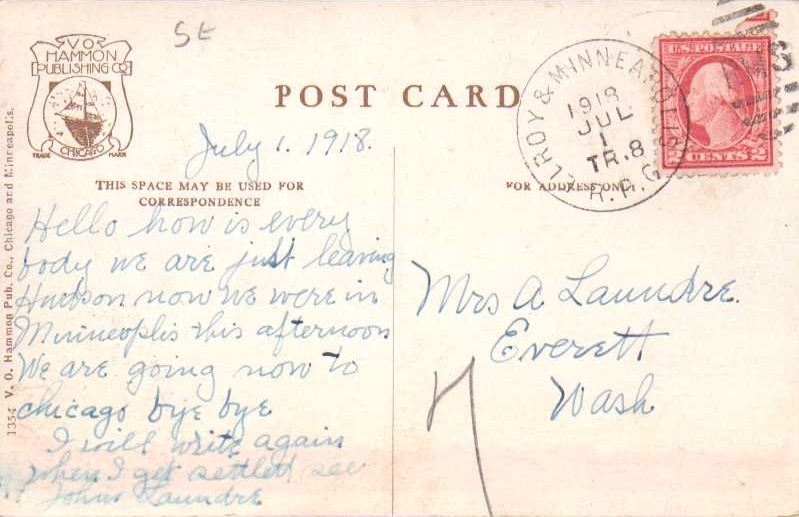 St
V O
HAMMON
PUBLISHING CO
TRADE CHICAGO MARK
POST CARD
July 1. 1918.
THIS SPACE MAY BE USED FOR
CORRESPONDENCE
Hello how is every
body we are just leaving
Hudson now we were in
Minineoplis this afternoon
We are going now to
chicago bye bye
I will write again
when I get settled see
John Laundre
1354 V. O. Hammon Pub. Co., Chicago and Minneapolis.
FOR ADDRESS ONLY
ELROY & MINNEAPOLIS
1918
JUL
1
TR.8
R.P.O
U.S. POSTAGE
2 CENTS 2
Mrs A Laundre.
Everett
Wash